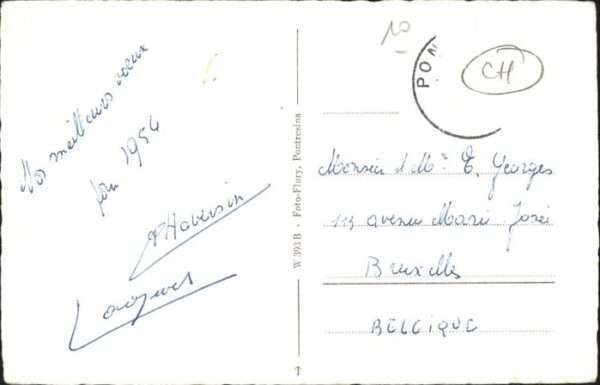 Nos meilleurs vœux
pour 1954
Jacques
W 393 B - Foto-Flury, Pontresina
10
PON
CH
Monsieur & Me E. Georges
113 avenue Marie José
Bruxelles
BELGIQUE